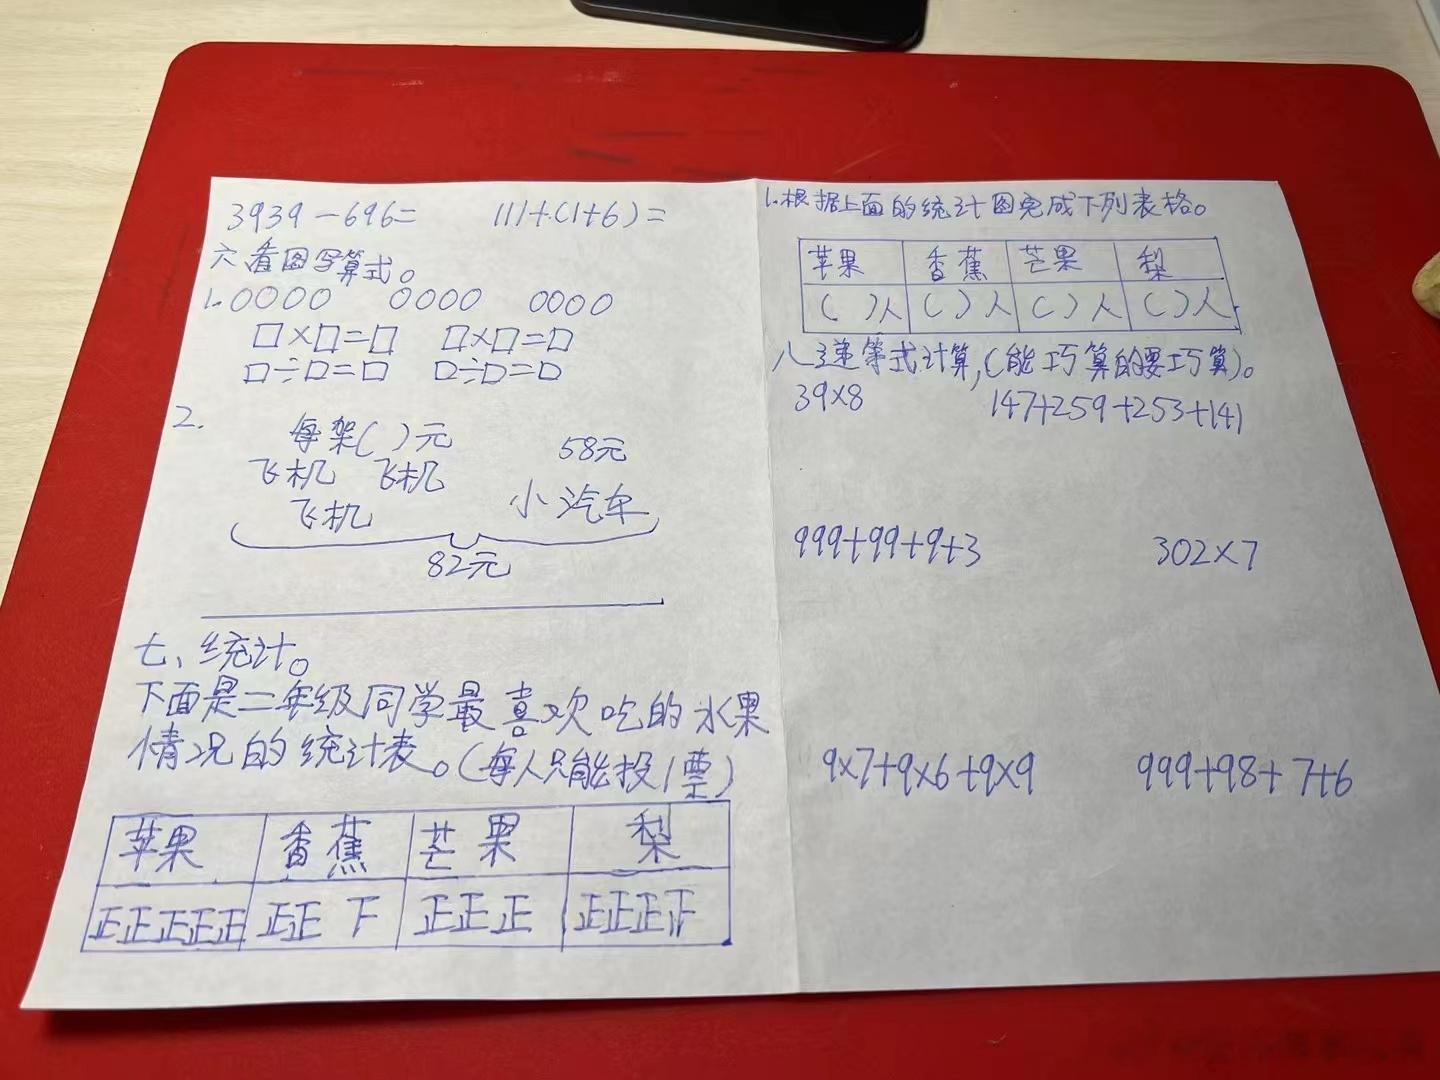 3939-696= 111+(1+6)=
六、看图写算式。
1.○○○○ ○○○○ ○○○○
□×□=□ □×□=□
□÷□=□ □÷□=□
2.
每架( )元 58元
飞机 飞机
飞机 小汽车
82元
七、统计。
下面是二年级同学最喜欢吃的水果
情况的统计表。(每人只能投1票)
苹果 香蕉 芒果 梨
正正正正正 正正下 正正正 正正正正
1.根据上面的统计图完成下列表格。
苹果 香蕉 芒果 梨
( )人 ( )人 ( )人 ( )人
八、递等式计算,(能巧算的要巧算)。
39×8 147+259+253+141
999+99+9+3 302×7
9×7+9×6+9×9 999+98+7+6